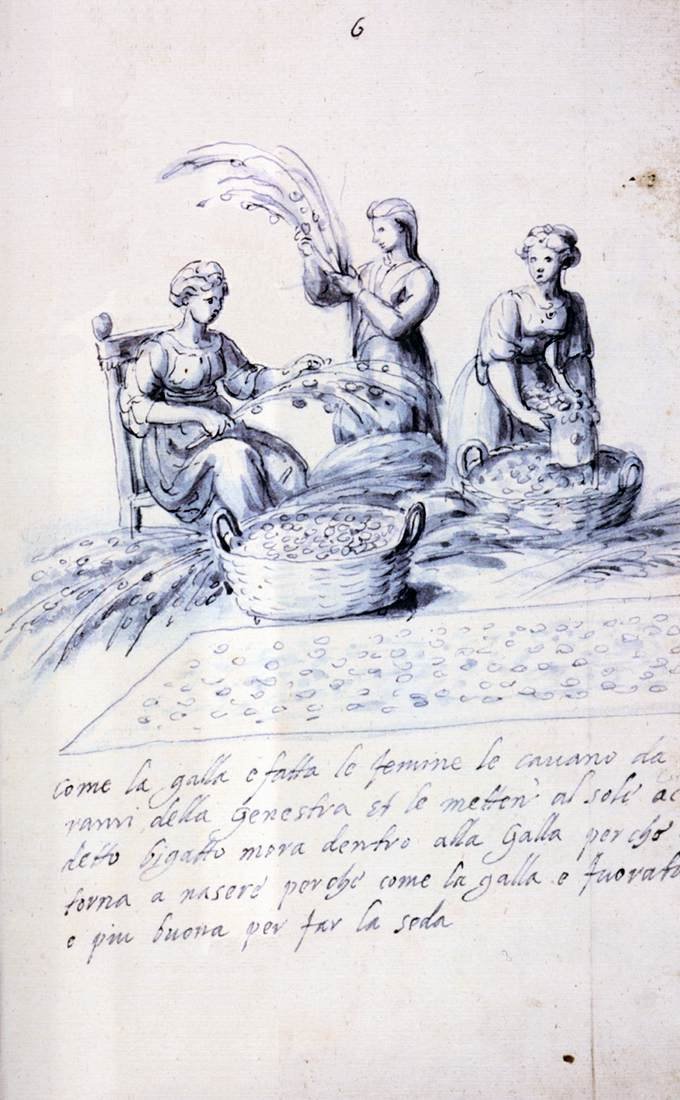 6
come la galla è fatta le femine le cavano da
rami della Genestra et le metten al sole ac
detto bigatto mora dentro alla Galla perchè
torna a nasere perchè come la galla e fuorata
e piu buona per far la seda